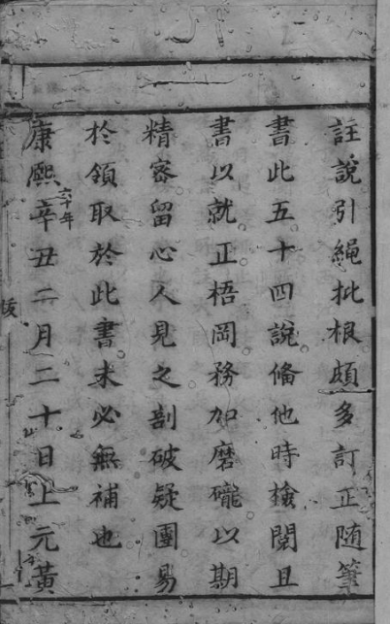 註說引繩批根頗多訂正随筆
書此五十四說俻他時撿閱且
書以就正梧岡務加磨礲以期
精密留心人見之剖破疑團易
於領取於此書未必無補也
康熙辛丑二月二十日上元黃
六十年
跋